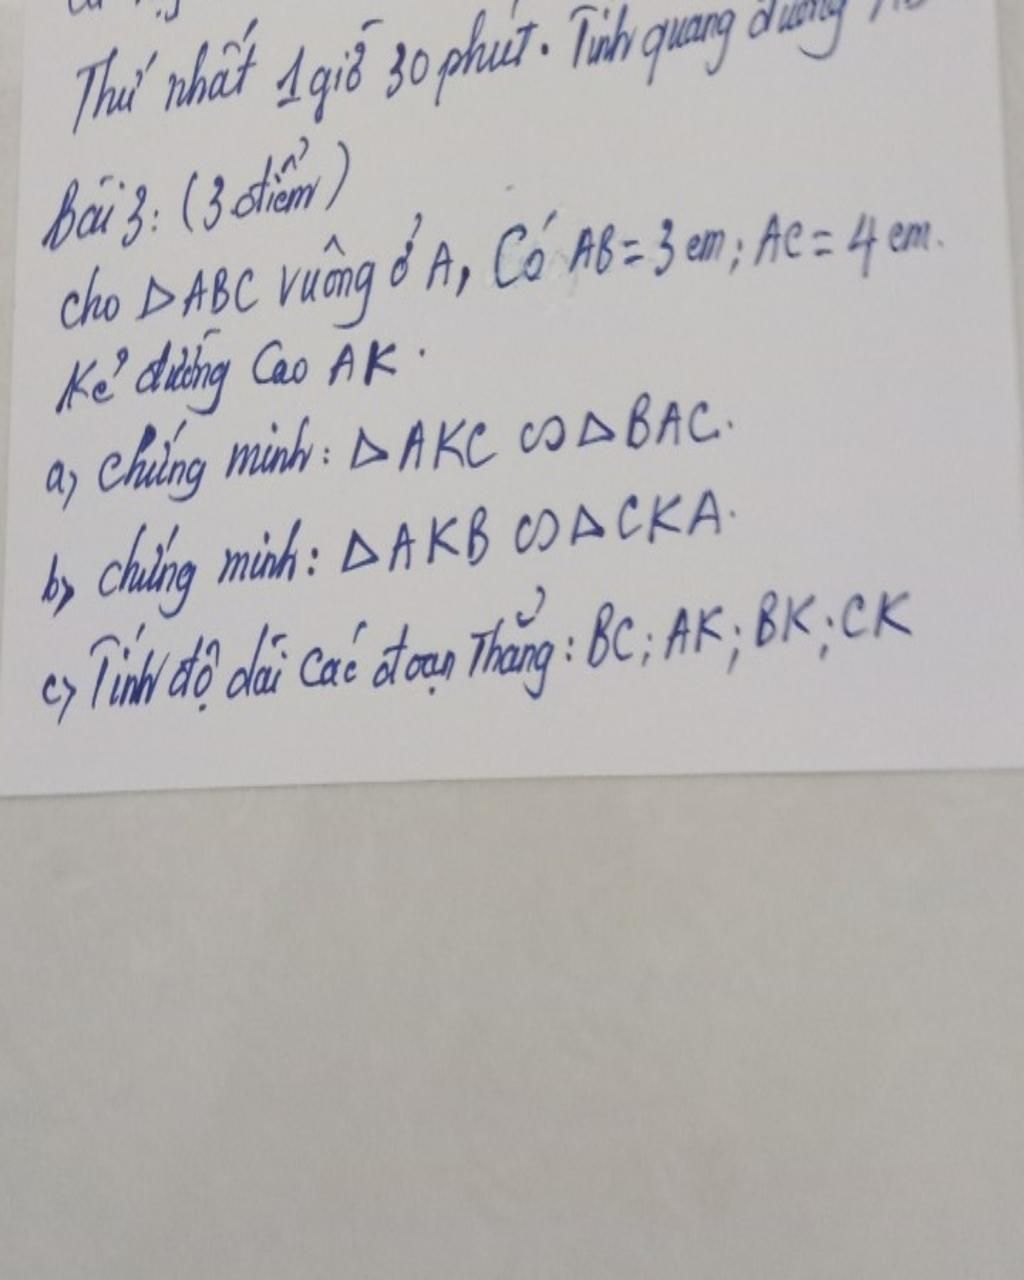 Thứ nhất 1 giờ 30 phút. Tính quãng đường
Bài 3: (3 điểm)
cho △ABC vuông ở A, Có AB = 3 cm; AC = 4 cm.
Kẻ đường Cao AK.
a, chứng minh: △AKC ∽ △BAC.
b, chứng minh: △AKB ∽ △CKA.
c, Tính độ dài các đoạn Thẳng: BC; AK; BK; CK